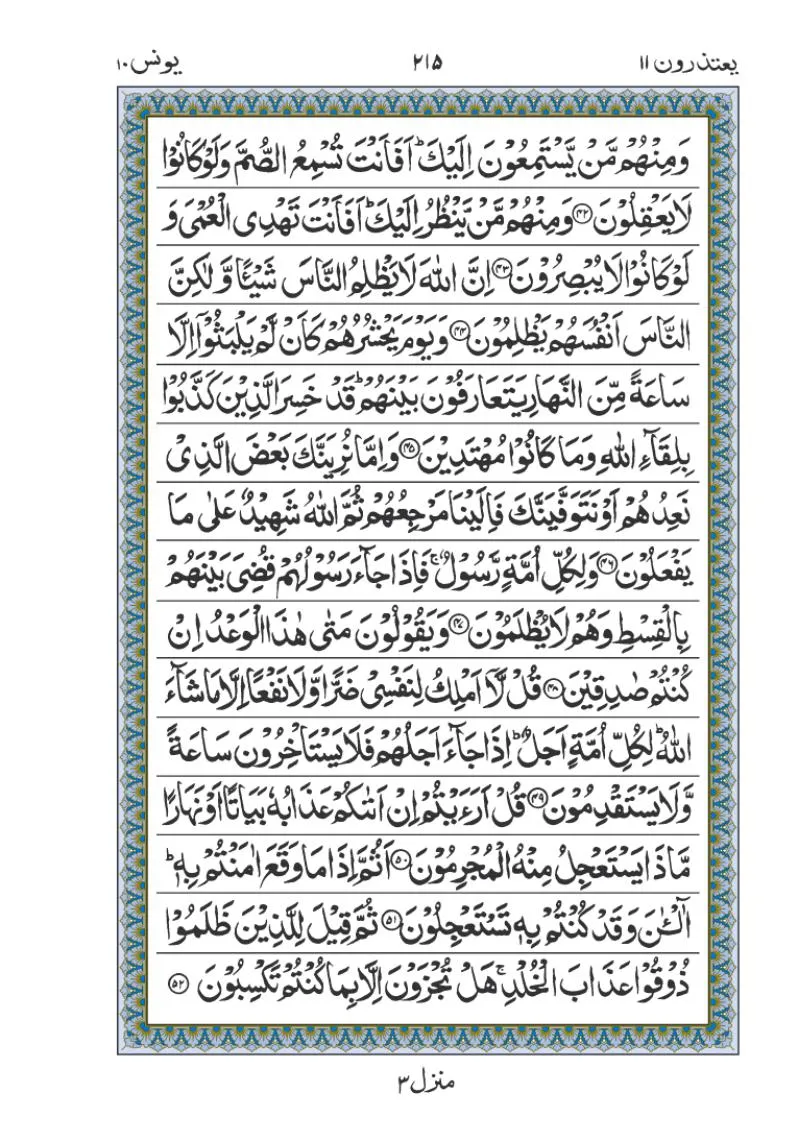 یعتذرون ۱۱ ۲۱۵ یونس ۱۰
وَمِنْهُمْ مَّنْ يَّسْتَمِعُوْنَ اِلَيْكَ ؕ اَفَاَنْتَ تُسْمِعُ الصُّمَّ وَلَوْ كَانُوْا
لَا يَعْقِلُوْنَ ﴿۴۲﴾ وَمِنْهُمْ مَّنْ يَّنْظُرُ اِلَيْكَ ؕ اَفَاَنْتَ تَهْدِى الْعُمْىَ وَ
لَوْ كَانُوْا لَا يُبْصِرُوْنَ ﴿۴۳﴾ اِنَّ اللّٰهَ لَا يَظْلِمُ النَّاسَ شَيْئًا وَّلٰكِنَّ
النَّاسَ اَنْفُسَهُمْ يَظْلِمُوْنَ ﴿۴۴﴾ وَيَوْمَ يَحْشُرُهُمْ كَاَنْ لَّمْ يَلْبَثُوْۤا اِلَّا
سَاعَةً مِّنَ النَّهَارِ يَتَعَارَفُوْنَ بَيْنَهُمْ ؕ قَدْ خَسِرَ الَّذِيْنَ كَذَّبُوْا
بِلِقَآءِ اللّٰهِ وَمَا كَانُوْا مُهْتَدِيْنَ ﴿۴۵﴾ وَاِمَّا نُرِيَنَّكَ بَعْضَ الَّذِىْ
نَعِدُهُمْ اَوْ نَتَوَفَّيَنَّكَ فَاِلَيْنَا مَرْجِعُهُمْ ثُمَّ اللّٰهُ شَهِيْدٌ عَلٰى مَا
يَفْعَلُوْنَ ﴿۴۶﴾ وَلِكُلِّ اُمَّةٍ رَّسُوْلٌ ۚ فَاِذَا جَآءَ رَسُوْلُهُمْ قُضِىَ بَيْنَهُمْ
بِالْقِسْطِ وَهُمْ لَا يُظْلَمُوْنَ ﴿۴۷﴾ وَيَقُوْلُوْنَ مَتٰى هٰذَا الْوَعْدُ اِنْ
كُنْتُمْ صٰدِقِيْنَ ﴿۴۸﴾ قُلْ لَّاۤ اَمْلِكُ لِنَفْسِىْ ضَرًّا وَّلَا نَفْعًا اِلَّا مَا شَآءَ
اللّٰهُ ؕ لِكُلِّ اُمَّةٍ اَجَلٌ ؕ اِذَا جَآءَ اَجَلُهُمْ فَلَا يَسْتَاْخِرُوْنَ سَاعَةً
وَّلَا يَسْتَقْدِمُوْنَ ﴿۴۹﴾ قُلْ اَرَءَيْتُمْ اِنْ اَتٰىكُمْ عَذَابُهٗ بَيَاتًا اَوْ نَهَارًا
مَّاذَا يَسْتَعْجِلُ مِنْهُ الْمُجْرِمُوْنَ ﴿۵۰﴾ اَثُمَّ اِذَا مَا وَقَعَ اٰمَنْتُمْ بِهٖ ؕ
آٰلْـٰٔنَ وَقَدْ كُنْتُمْ بِهٖ تَسْتَعْجِلُوْنَ ﴿۵۱﴾ ثُمَّ قِيْلَ لِلَّذِيْنَ ظَلَمُوْا
ذُوْقُوْا عَذَابَ الْخُلْدِ ۚ هَلْ تُجْزَوْنَ اِلَّا بِمَا كُنْتُمْ تَكْسِبُوْنَ ﴿۵۲﴾
منزل ۳